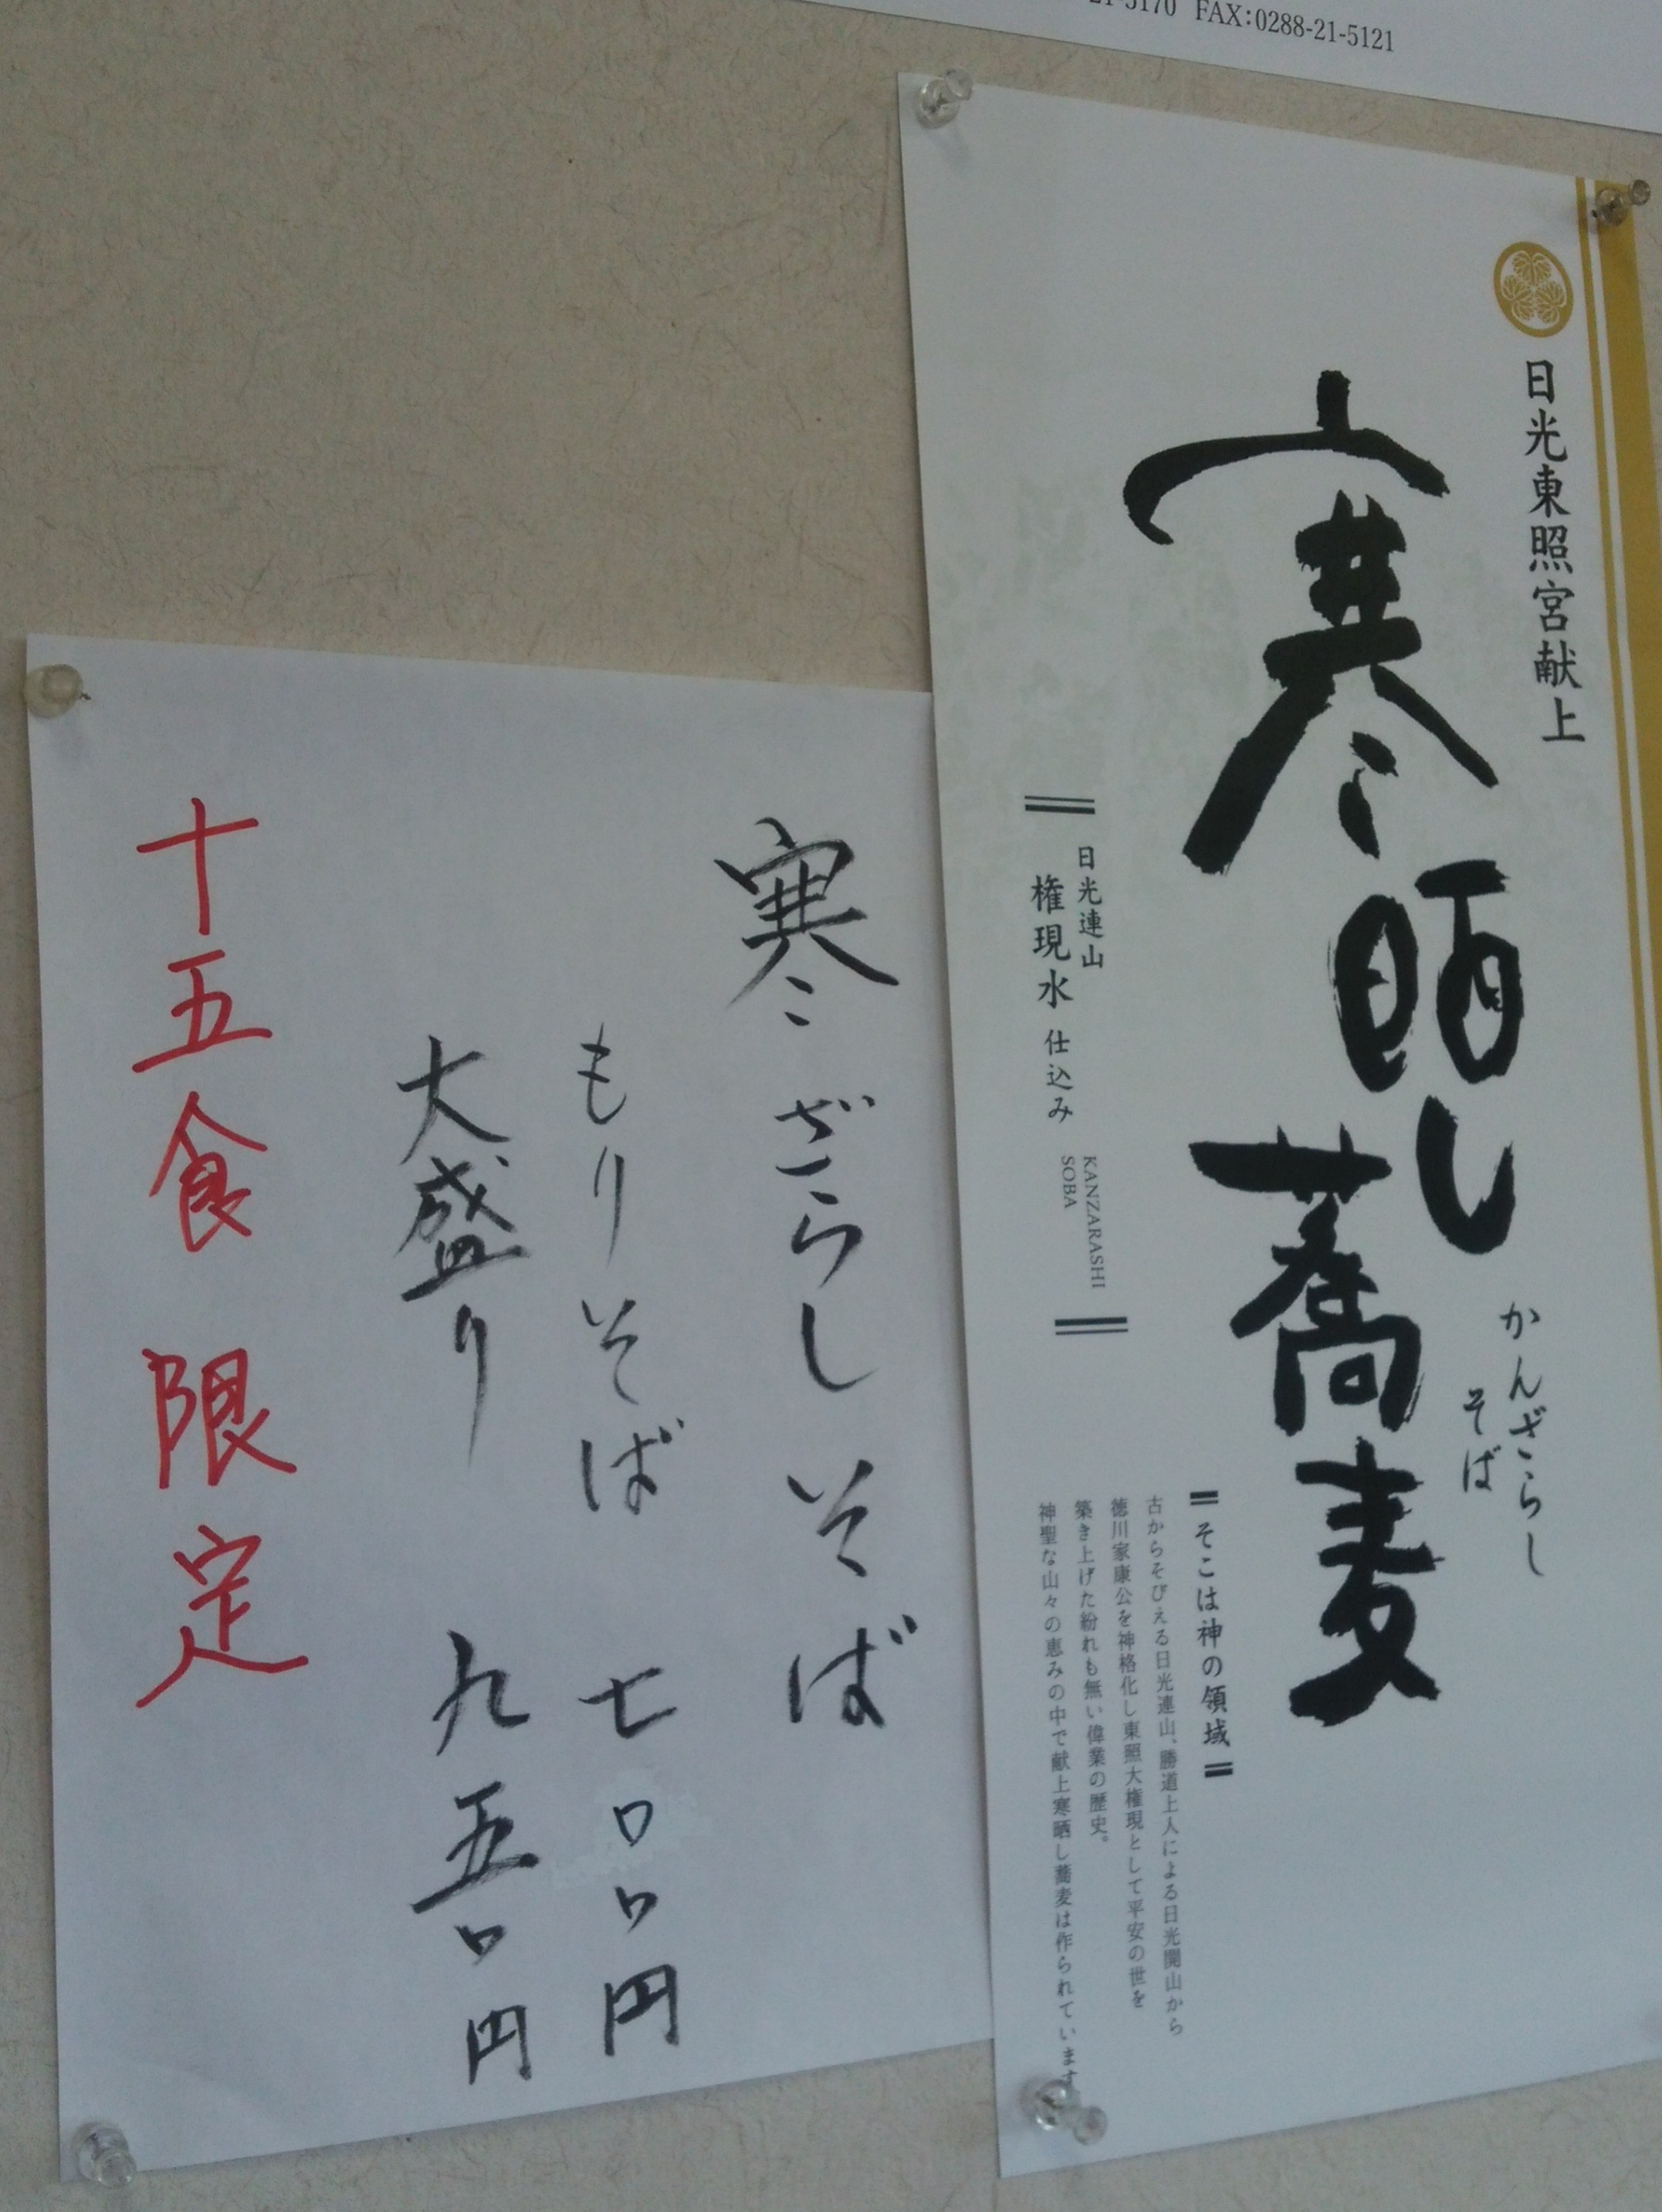 FAX:0288-21-5121
日光東照宮献上
寒晒し蕎麦
かんざらし
そば
日光連山
権現水 仕込み
KANZARASHI
SOBA
そこは神の領域
古からそびえる日光連山、勝道上人による日光開山から
徳川家康公を神格化し東照大権現として平安の世を
築き上げた紛れも無い偉業の歴史。
神聖な山々の恵みの中で献上寒晒し蕎麦は作られています
寒ざらしそば
もりそば 七〇〇円
大盛り 九五〇円
十五食 限定